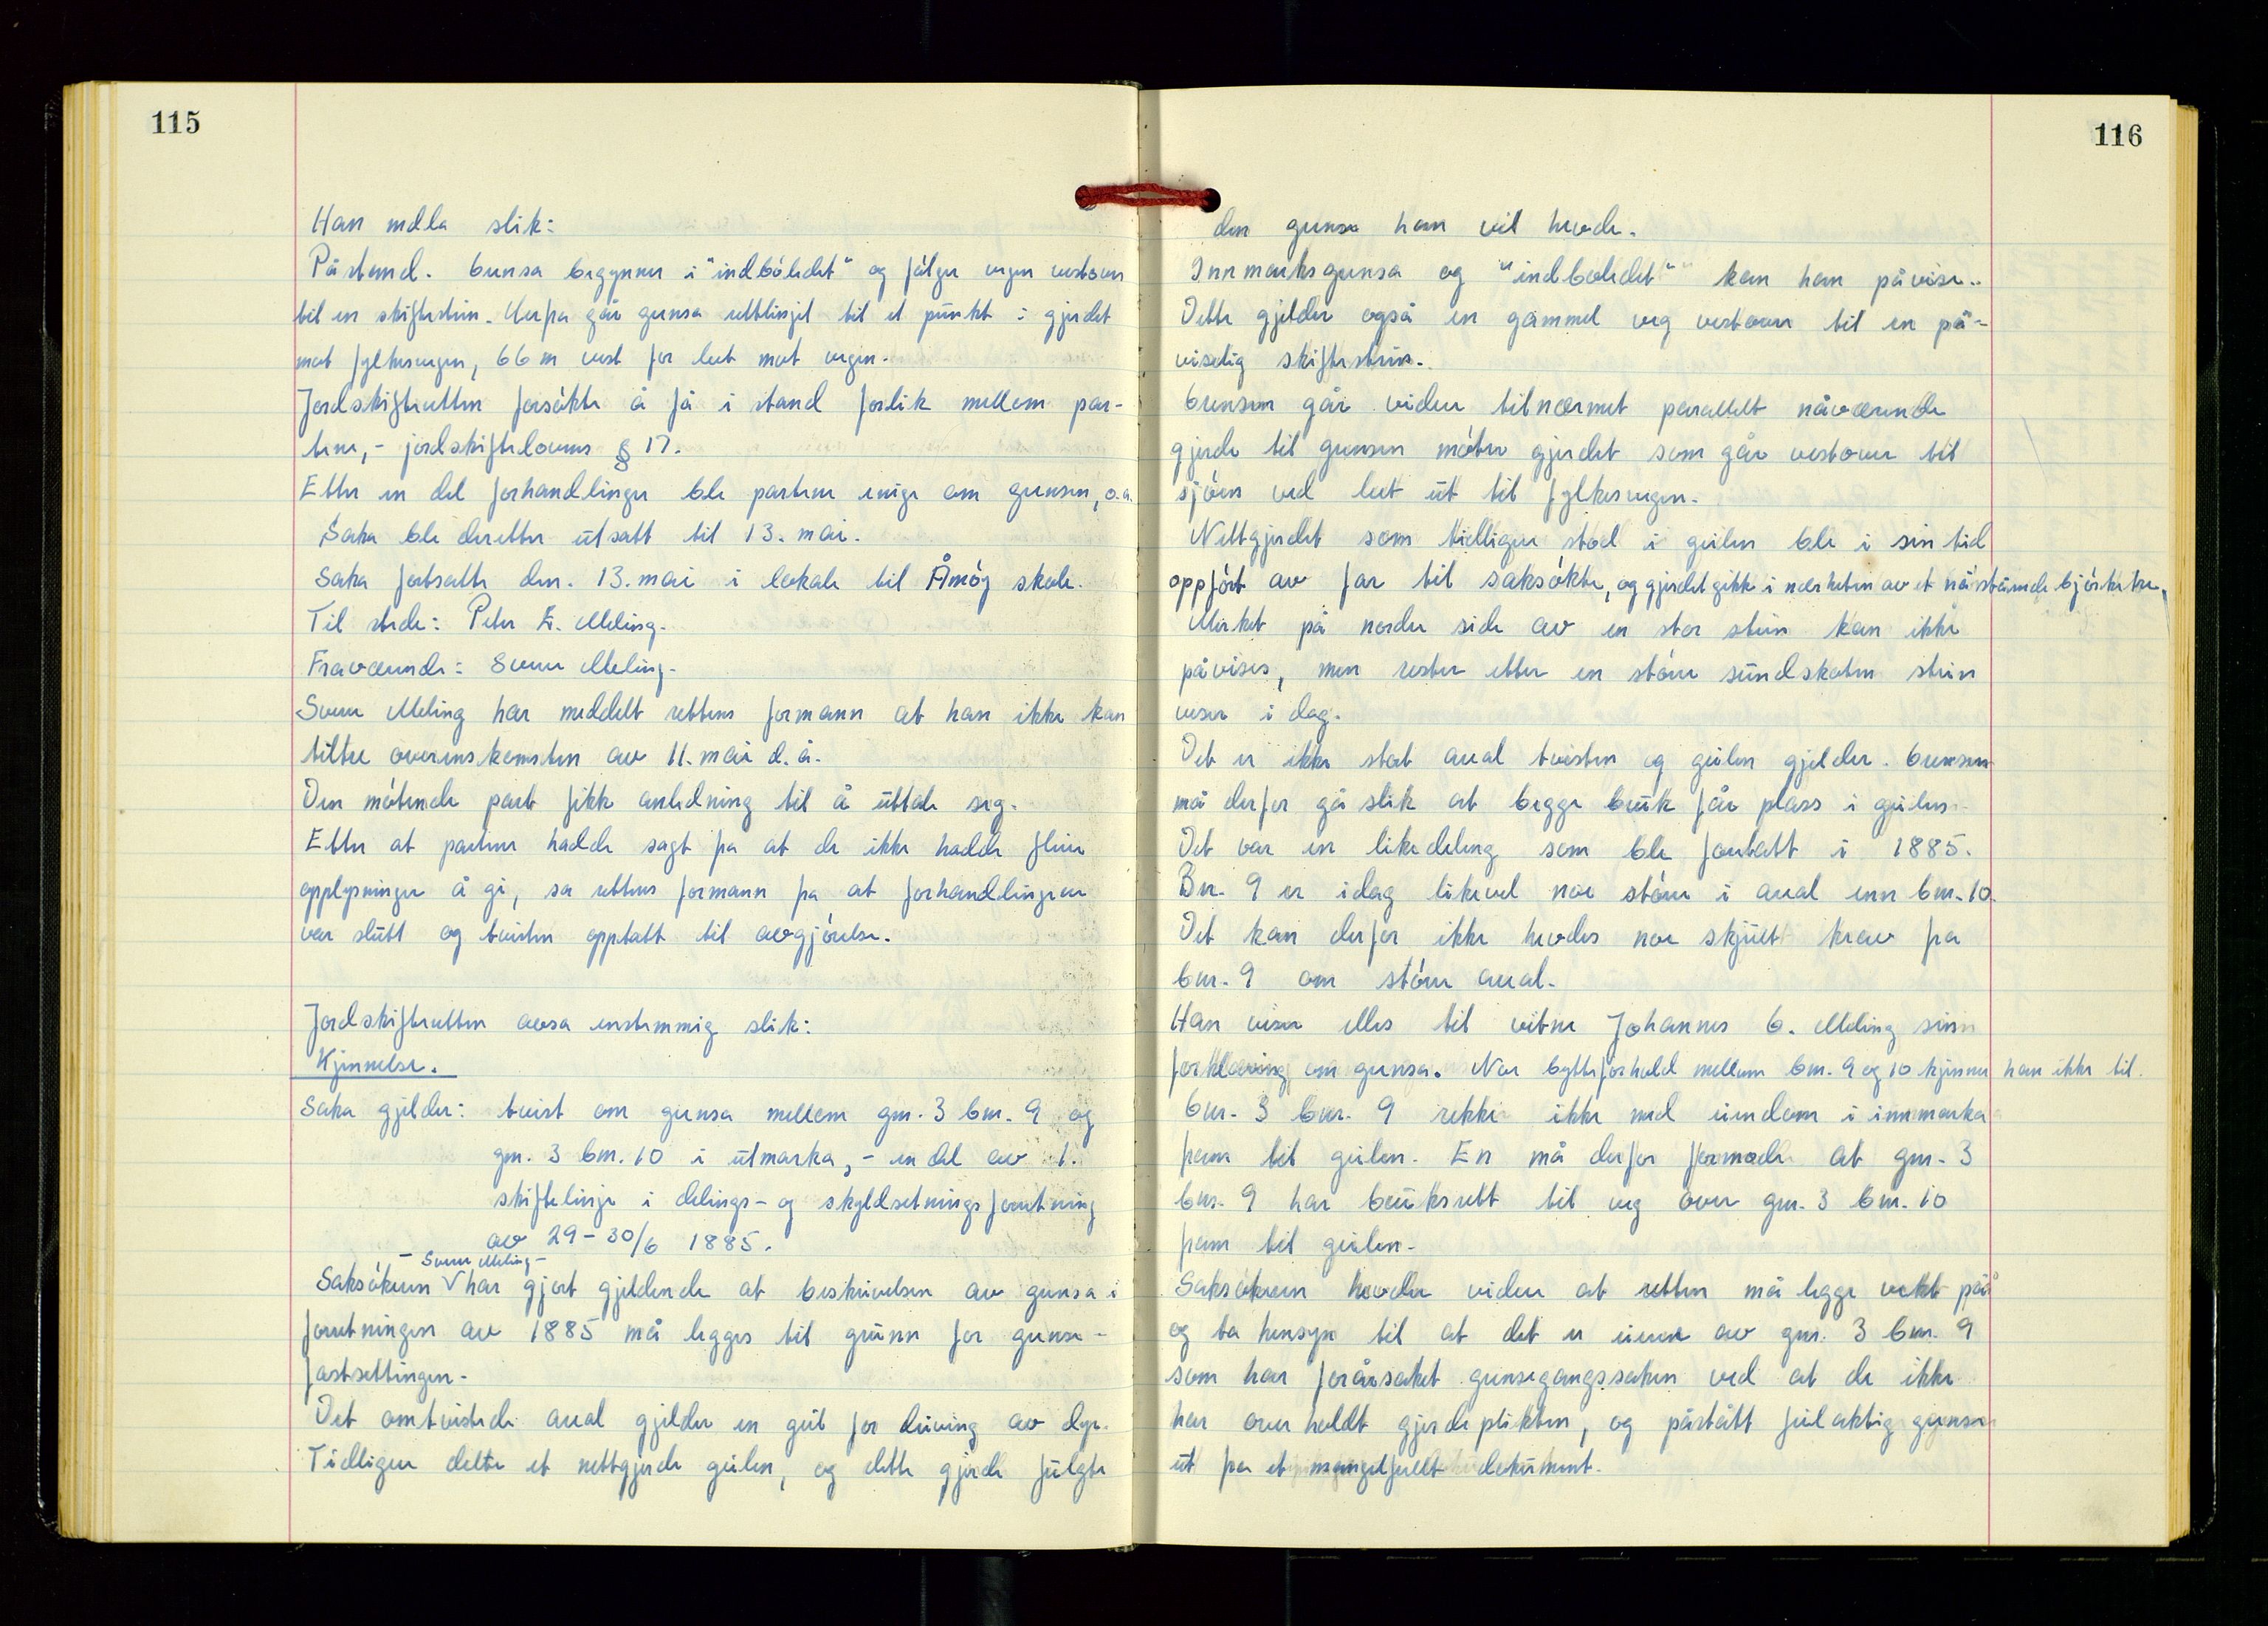 115
Han nedla slik:
Påstand. Grensa begynner i "indbøledet" og følger vegen vestover
til en skiftestein. Herfra går grensa rettlinjet til et punkt i gjerdet
mot fylkesvegen, 66 m vest for leet mot vegen.
Jordskifteretten forsøkte å få i stand forlik mellem par-
tene, - jordskiftelovens § 17.
Etter en del forhandlinger ble partene enige om grensen, o.a.
Saka ble deretter utsatt til 13. mai.
Saka fortsatte den. 13. mai i lokale til Åmøy skole.
Til stede: Peter E. Meling.
Fraværende: Sverre Meling.
Sverre Meling har meddelt rettens formann at han ikke kan
tiltre overenskomsten av 11. mai d.å.
Den møtende part fikk anledning til å uttale seg.
Etter at partene hadde sagt fra at de ikke hadde flere
opplysninger å gi, sa rettens formann fra at forhandlingene
var slutt og tvisten opptatt til avgjørelse.
Jordskifteretten avsa enstemmig slik:
Kjennelse.
Saka gjelder: tvist om grensa mellem gnr. 3 bnr. 9 og
gnr. 3 bnr. 10 i utmarka, - en del av 1.
skiftelinje i delings- og skyldsetningsforretning
av 29-30/6 1885.
- Sverre Meling -
Saksøkeren V har gjort gjeldende at beskrivelsen av grensa i
forretningen av 1885 må legges til grunn for grense-
fastsettingen.
Det omtvistede areal gjelder en geil for driving av dyr.
Tidligere delte et nettgjerde geilen, og dette gjerde fulgte
116
den grense han vil hevde.
Innmarksgrensa og "indboledet" kan han påvise.
Dette gjelder også en gammel veg vestover til en på-
viselig skiftestein.
Grensen går videre tilnærmet parallelt nåværende
gjerde til grensen møter gjerdet som går vestover til
sjøen ved leet ut til fylkesvegen.
Nettgjerdet som tidligere stod i geilen ble i sin tid
oppført av far til saksøkte, og gjerdet gikk i nærheten av et nåstående bjørketre.
Merket på nordre side av en stor stein kan ikke
påvises, men rester etter en større sundskoten stein
viser i dag.
Det er ikke stort areal tvisten og geilen gjelder. Grensen
må derfor gå slik at begge bruk får plass i geilen.
Det var en likedeling som ble foretatt i 1885.
Bnr. 9 er idag likevel noe større i areal enn bnr. 10.
Det kan derfor ikke hevdes noe skjult krav fra
bnr. 9 om større areal.
Han viser elles til vitne Johannes G. Meling sin
forklaring om grensa. Noe bytteforhold mellem bnr. 9 og 10 kjenner han ikke til.
Gnr. 3 bnr. 9 rekker ikke med eiendom i innmarka
fram til geilen. En må derfor formode at gnr. 3
bnr. 9 har bruksrett til veg over gnr. 3 bnr. 10
fram til geilen.
Saksøkeren hevder videre at retten må legge vekt på
og ta hensyn til at det er eieren av gnr. 3 bnr. 9
som har forårsaket grensegangssaken ved at de ikke
har overholdt gjerdeplikten, og påstått feilaktig grense
ut fra et mangelfullt dokument.